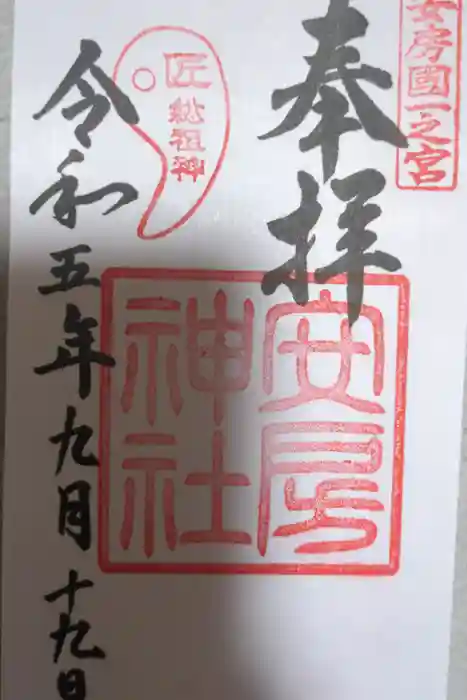 安房國一之宮
奉拝
安房
神社
匠
総祖神
令和五年九月十九日